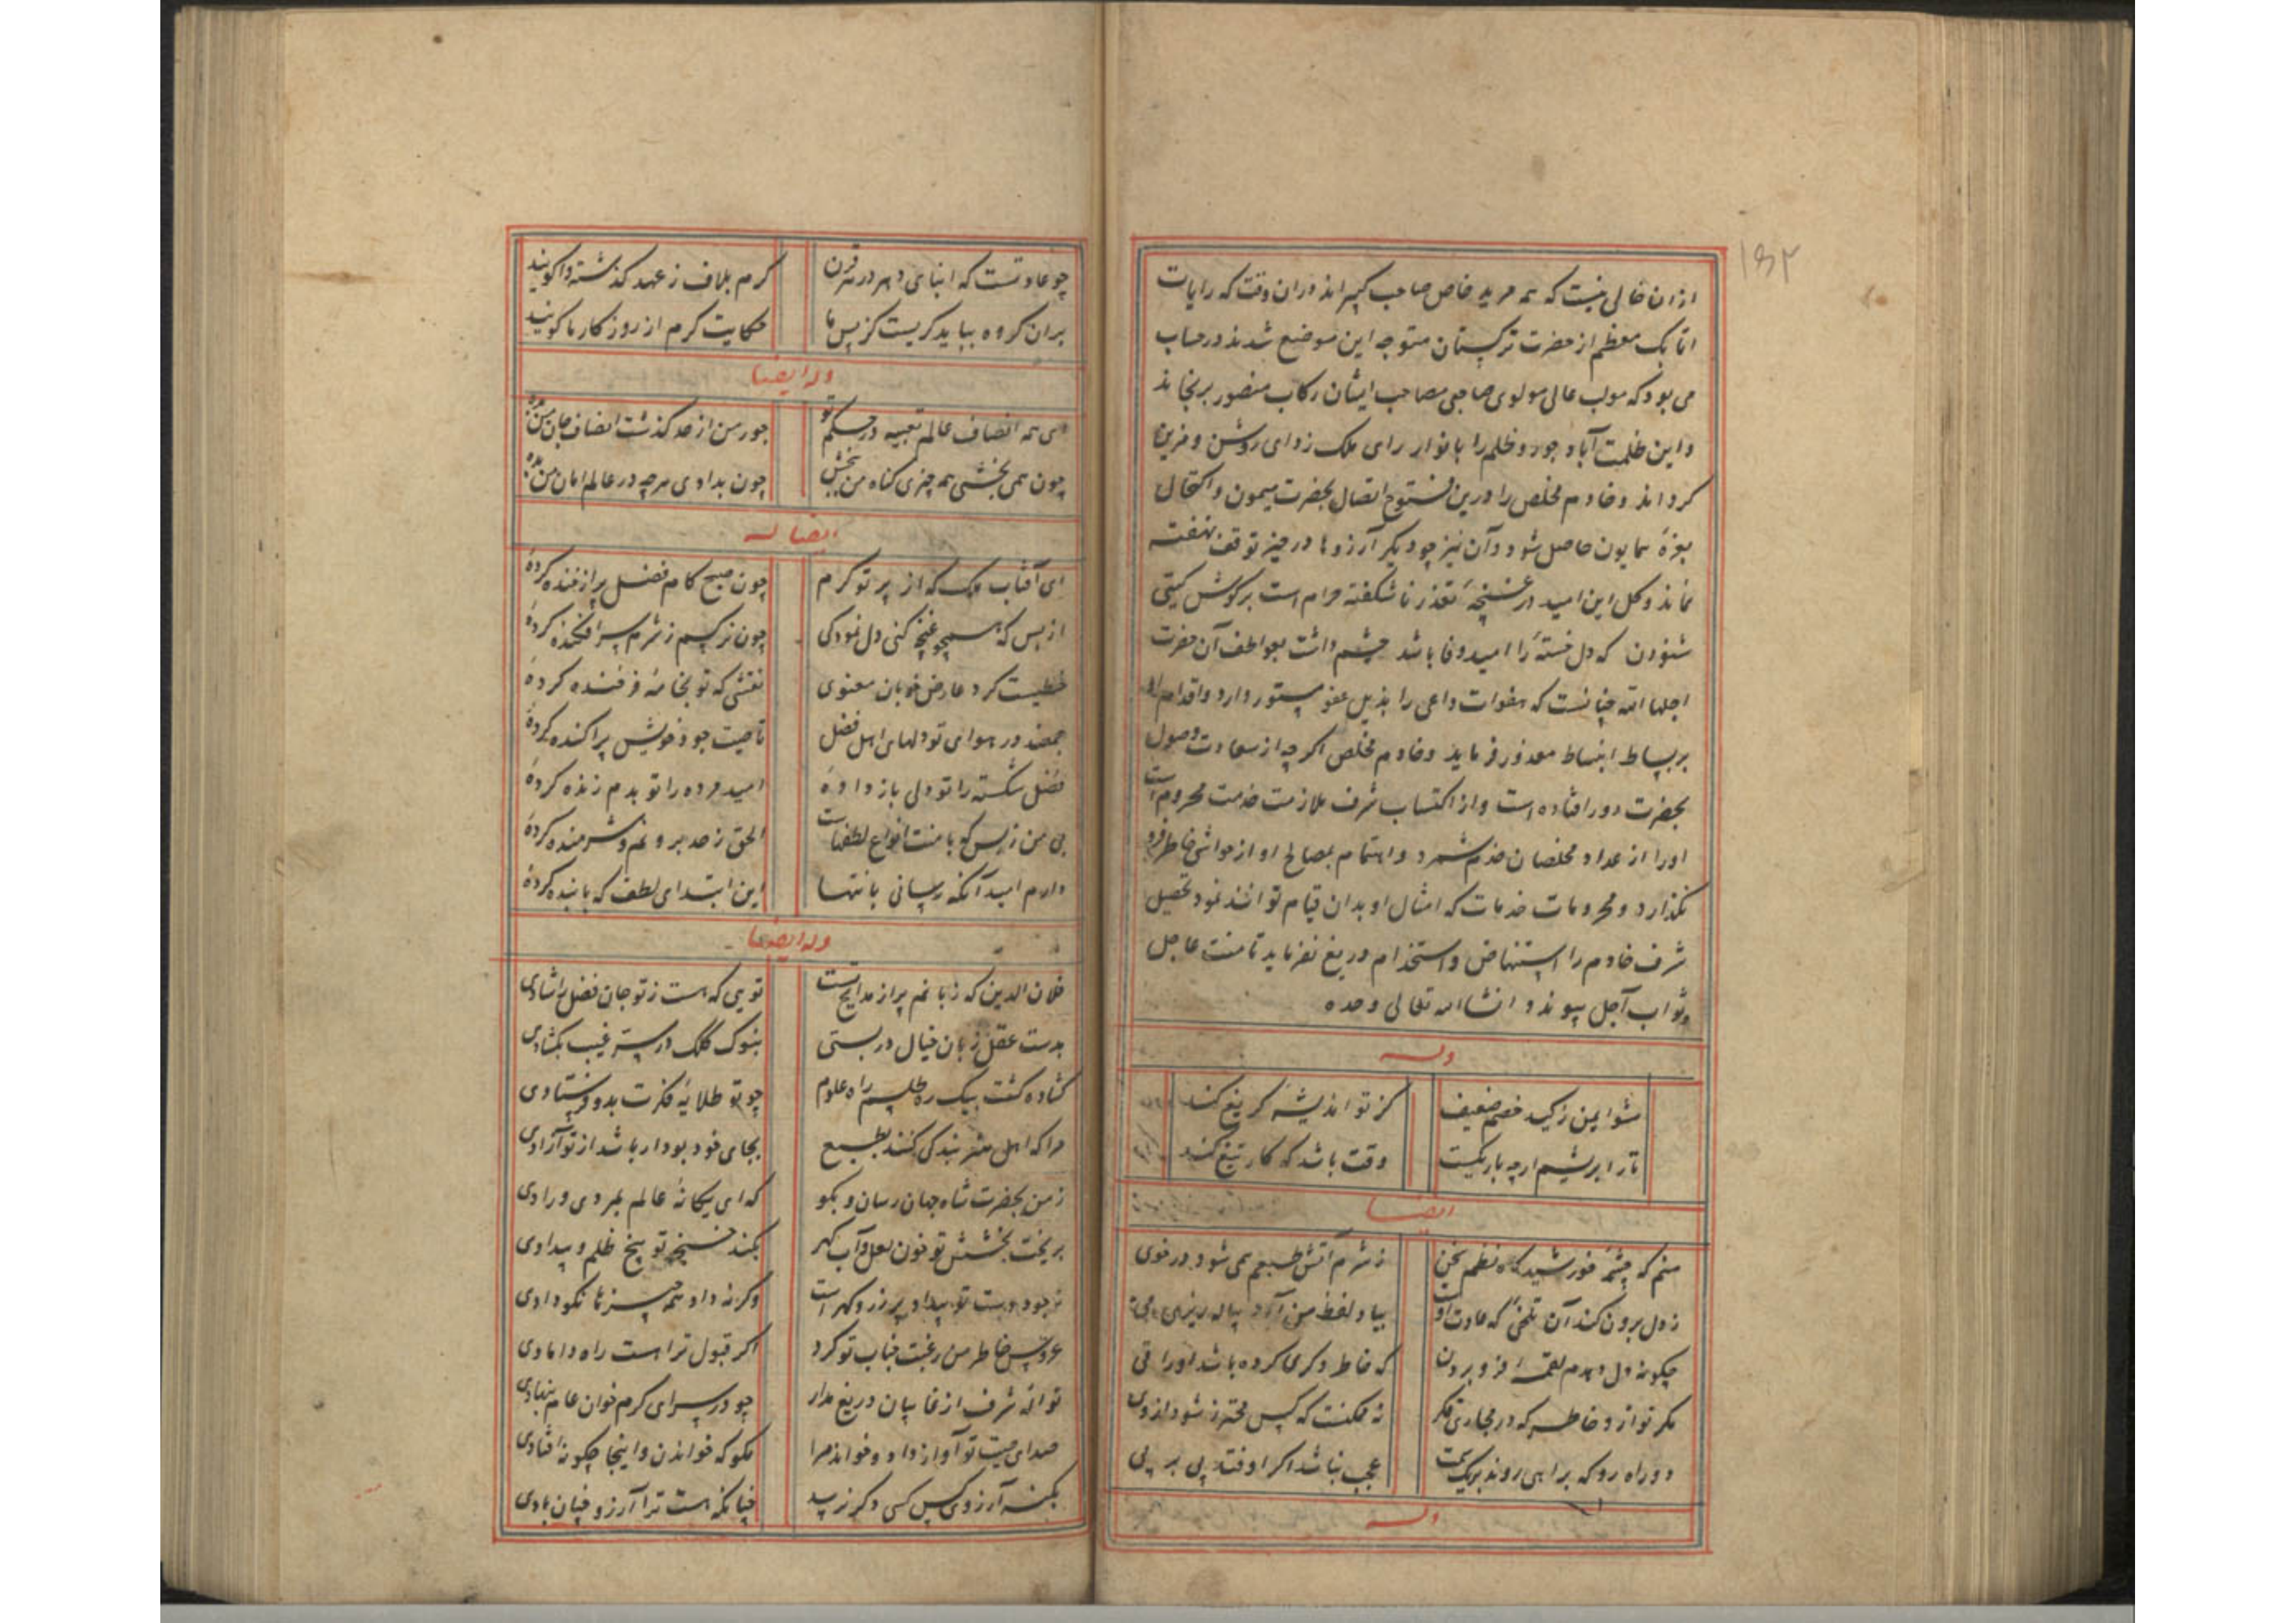 ۱۵۲
ازان خالی نیست که همه مرید خاص صاحب کبیراند دران وقت که رایات
اتابک معظم از حضرت ترکستان متوجه این موضع شدند در حساب
می بود که موکب عالی مولوی صاحبی مصاحب ایشان رکاب منصور برنجاند
و این ظلمت آباد جور و ظلم را بانوار رای ملک زدای روشن و مزین
کرداند و خادم مخلص را درین اتصال بحضرت میمون و اکتحال
بغرهٔ همایون حاصل شود و آن نیز چو دیگر آرزوها در حیز توقف نهفته
نماند و کل این امید در غنچهٔ تعذر ناشکفته حرام است بر کوش کیتی
شنودن که دل خستهٔ را امید وفا باشد چشم داشت بعواطف آن حضرت
اجلها الله چنانست که هفوات داعی را بذیل عفو مستور دارد و اقدام او
بر بساط انبساط معذور فرماید و خادم مخلص اکر چه از سعادت وصول
بحضرت دور افتاده است و از اکتساب شرف ملازمت خدمت محروم است
اورا از عداد مخلصان خدم شمرد و اهتمام بمصالح او از حواشی خاطر فرو
نکذارد و خدمات که امثال او بدان قیام توانند نمود تحصیل
شرف خادم را استنهاض و استخدام دریغ نفرماید تا منت عاجل
و ثواب آجل پیوندد انشاالله تعالی وحده
وله
مشو ایمن ز کید خصم ضعیف کز تو اندیشه کریغ کند
تار ابریشم ارچه باریکست وقت باشد که کار تیغ کند
ایضا
منم که چشمهٔ خورشید کاه نظم سخن ز شرم آتش طبعم همی شود در خوی
ز دل برون کند آن تلخی که عادت اوست بیاد لفظ من ار در پیاله ریزی می
چکونه دل دهدم لقمهٔ فرو بردن که خاطر دکری کرده باشد اورا قی
مکر توارد خاطر که در مجاری فکر نه ممکنست که کس محترز شود از وی
دو راه رو که براهی روند بر یک سمت عجب نباشد اکر اوفتد پی بر پی
وله
چو عادتست که ابنای دهر در هر قرن کرم بلاف ز عهد کذشته واکویند
بران کروه بباید کریست کز پس ما حکایت کرم از روزکار ما کویند
وله ایضا
ای همه انصاف عالم تعبیه در حکم تو جور من از حد کذشت انصاف جان من بده
چون همی بخشی همه چیزی کناه من ببخش چون بدادی هرچه در عالم امان من بده
ایضا له
ای آفتاب ملک که از پرتو کرم چون صبح کام فضل پر از خنده کردهٔ
از بس که همچو غنچه کنی دل نمودکی چون نرکسم ز شرم سرافکنده کردهٔ
خطیست کرد عارض خوبان معنوی نقشی که تو بخامهٔ فرخنده کردهٔ
جمعند در هوای تو دلهای اهل فضل تا صیت جود خویش پراکنده کردهٔ
فضل شکسته را تو دلی باز دادهٔ امید مرده را تو بدم زنده کردهٔ
بی من ز بس که با منت انواع لطفهاست الحق ز صد برو غم و شرمنده کردهٔ
دارم امید آنکه رسانی بانتها این ابتدای لطف که با بنده کردهٔ
وله ایضا
فلان الدین که زبانم پر از مدایح تست تویی که هست ز تو جان فضل را شادی
بدست عقل زبان خیال در بستی بنوک کلک در ستر غیب بکشادی
کشاده کشت بیک ره طلسم راه علوم چو تو طلایهٔ فکرت بدو فرستادی
مرا که اهل هنر بندکی کنند بطبع بجای خود بود ار باشد از تو آزادی
ز من بحضرت شاه جهان رسان و بکو که ای یکانهٔ عالم بمردی و رادی
بریخت بخشش تو خون لعل و آب کهر بکند خنجر تو بیخ ظلم و بیدادی
ز جود دست تو بیداد بر زر و کهر است وکرنه داد همه چیزها نکو دادی
عروس خاطر من رغبت جناب تو کرد اکر قبول ترا هست راه دامادی
نوالهٔ شرف از غایبان دریغ مدار چو در سرای کرم خوان عام بنهادی
صدای صیت تو آواز داد و خواند مرا مکو که خواندت و اینجا چکونه افتادی
بکنه آرزوی کس کسی دکر نرسد چنانکه هست ترا آرزو چنان بادی